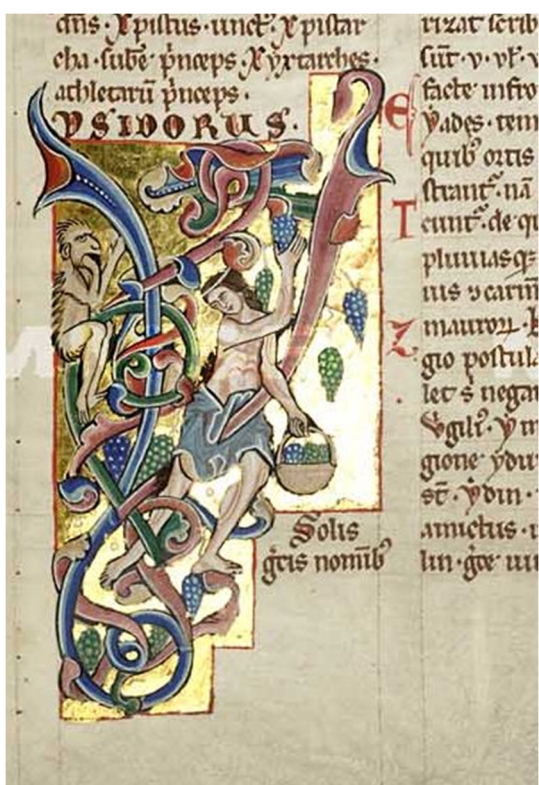 dn̄s · Xpistus · unct᷒ · Xpistar
cha · subē p̄nceps · Xyxtarches ·
athletarū p̄nceps ·
YSIDORUS ·
Solis
ḡcis nomīb᷒
rizat scrib
sūt · v · vl᷒ ·
E facte infro
ẏades · tem
quib᷒ ortis
strant᷒ · nā
T eunt᷒ · de
pluuiasq̄
ius
Z mauroꝝ ·
gio postula
let s̄ negar
ẏ
gione
st̄ · ẏdin ·
amictus ·
lin · ḡce ·